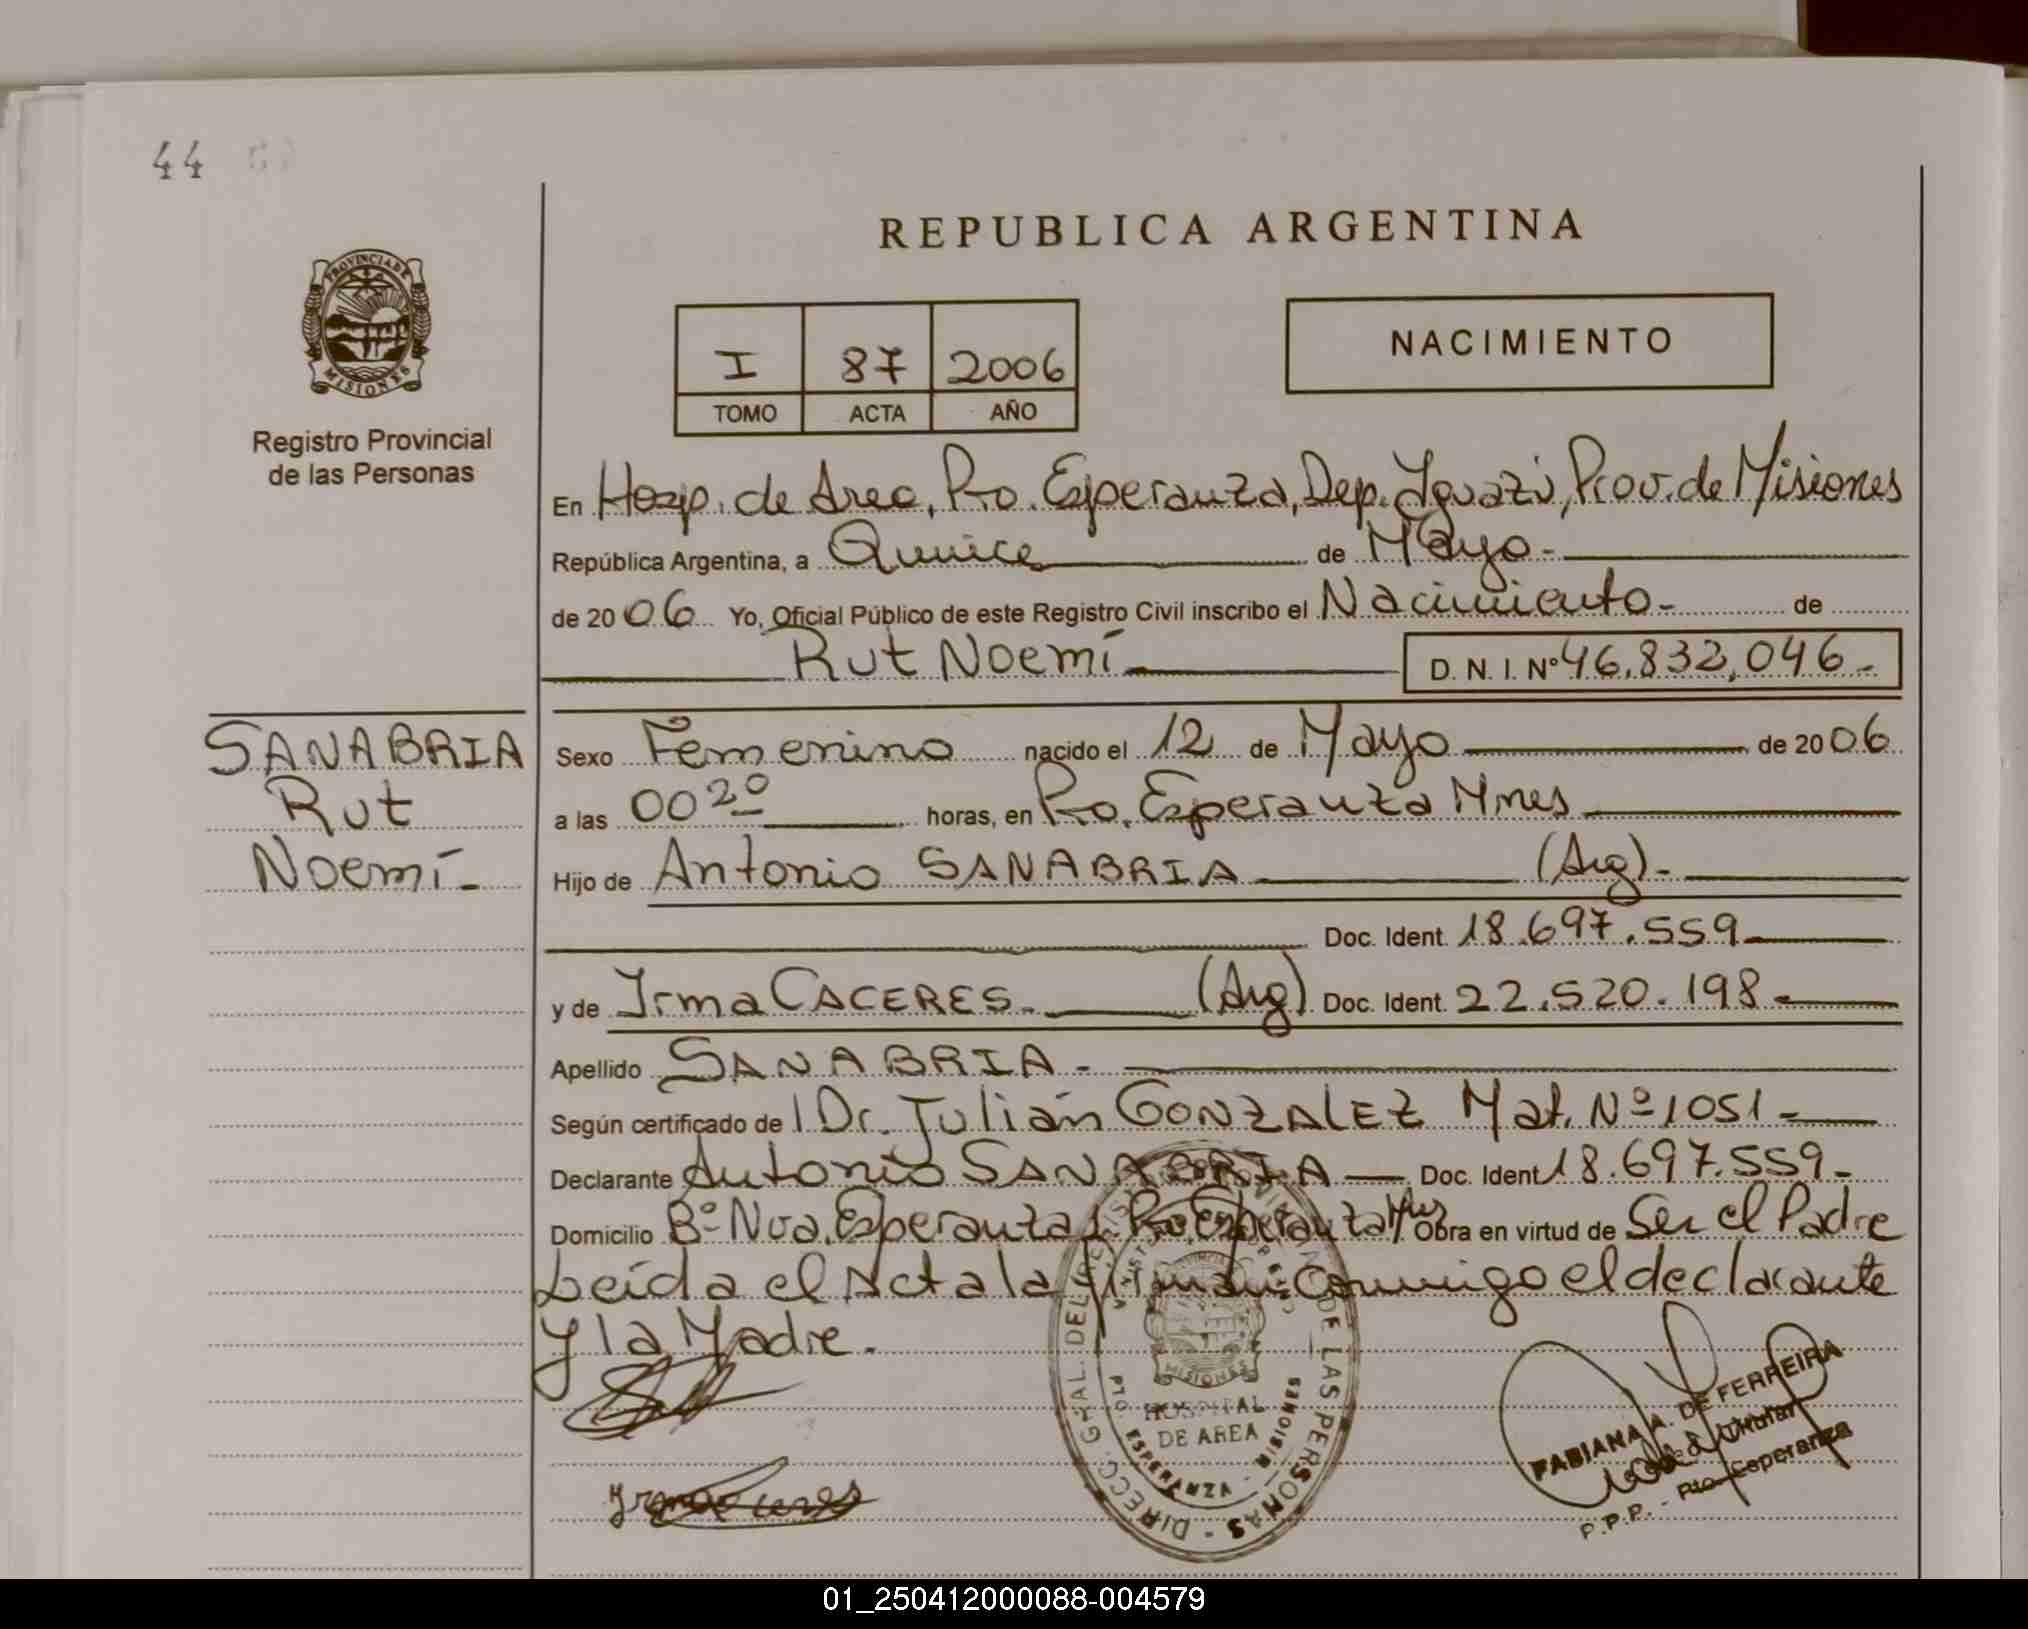 44
REPUBLICA ARGENTINA
PROVINCIA DE
MISIONES
Registro Provincial
de las Personas
I 87 2006
TOMO ACTA AÑO
NACIMIENTO
En Hosp. de Area, Pto. Esperanza, Dep. Iguazú, Prov. de Misiones
República Argentina, a Quince de Mayo-
de 2006 Yo, Oficial Público de este Registro Civil inscribo el Nacimiento- de
Rut Noemí D. N. I. Nº 46.832,046-
SANABRIA
Rut
Noemí-
Sexo Femenino nacido el 12 de Mayo de 2006
a las 00 20 horas, en Pto. Esperanza Mnes
Hijo de Antonio SANABRIA (Arg)-
Doc. Ident. 18.697.559
y de Irma CACERES. (Arg) Doc. Ident. 22.520.198-
Apellido SANABRIA-
Según certificado de Dr. Julián GONZALEZ Mat. Nº 1051-
Declarante Antonio SANABRIA Doc. Ident 18.697.559-
Domicilio Bº Nva. Esperanza, Pto Esperanza Mnes Obra en virtud de Ser el Padre
Leída el Acta la firman Conmigo el declarante
y la Madre.
DIRECC. GRAL. DEL DE LAS PERSONAS
MISIONES
HOSPITAL
DE AREA
PTO. ESPERANZA - MISIONES
FABIANA A. DE FERREIRA
Titular
P.P.P. - Pto. Esperanza
01_250412000088-004579